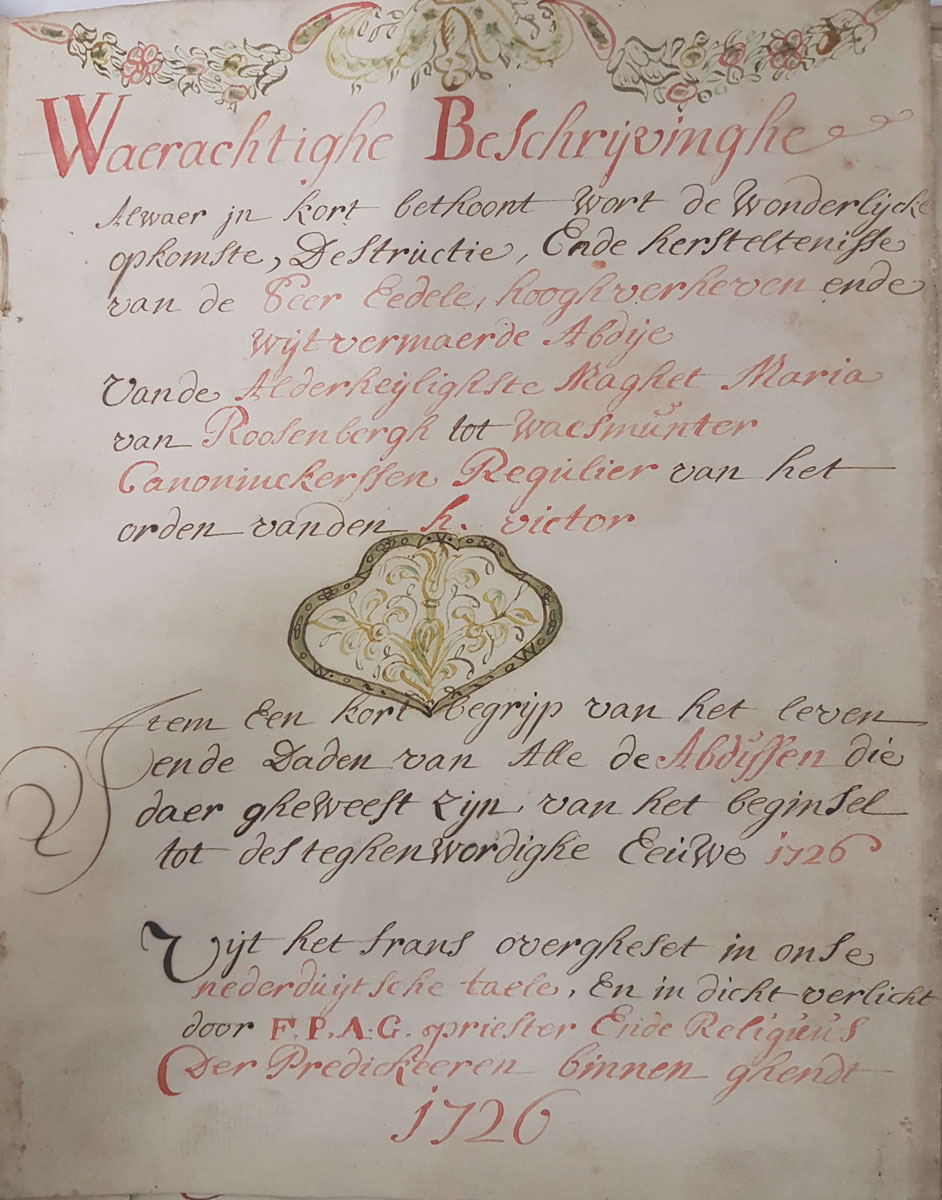 Waerachtighe Beschrijvinghe
Alwaer jn kort bethoont wort de Wonderlijcke
opkomste, Destructie, Ende hersteltenisse
van de Seer Eedele, hooghverheven ende
wijtvermaerde Abdije
Vande Alderheylighste Maghet Maria
van Roosenbergh tot waesmunter
Canoniuckerssen Regulier van het
orden vanden h. victor
Item Een kort begrijp van het leven
ende Daden van Alle de Abdyssen die
daer gheweest zijn van het beginsel
tot des teghenwordighe Eeuwe 1726
Uijt het frans overgheset in onse
nederduijtsche taele, En in dicht verlicht
door F. P. A. G. priester Ende Religuus
Der Predickeeren binnen ghendt
1726